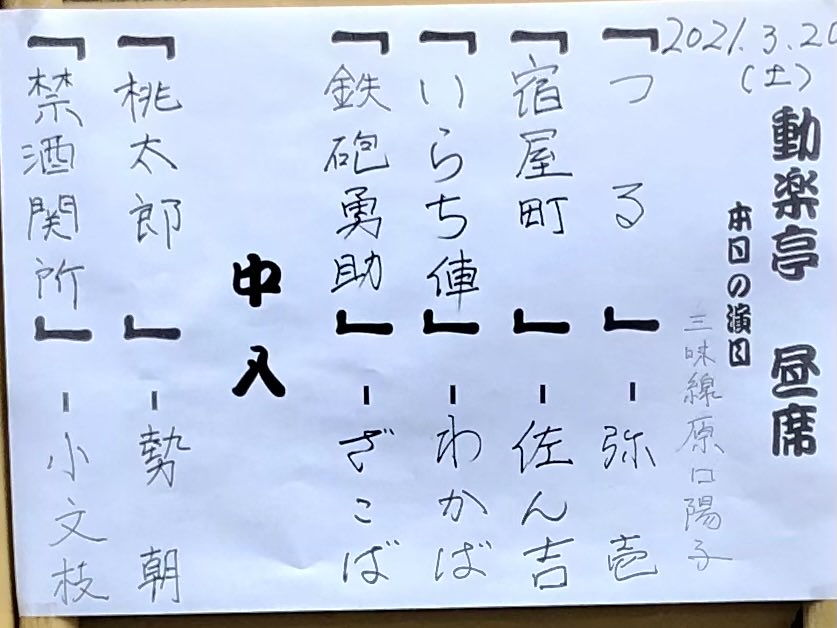 2021.3.20
(土)
動楽亭 昼席
本日の演目
三味線 原口陽子
「つる」-弥壱
「宿屋町」-佐ん吉
「いらち俥」-わかば
「鉄砲勇助」-ざこば
中入
「桃太郎」-勢朝
「禁酒関所」-小文枝